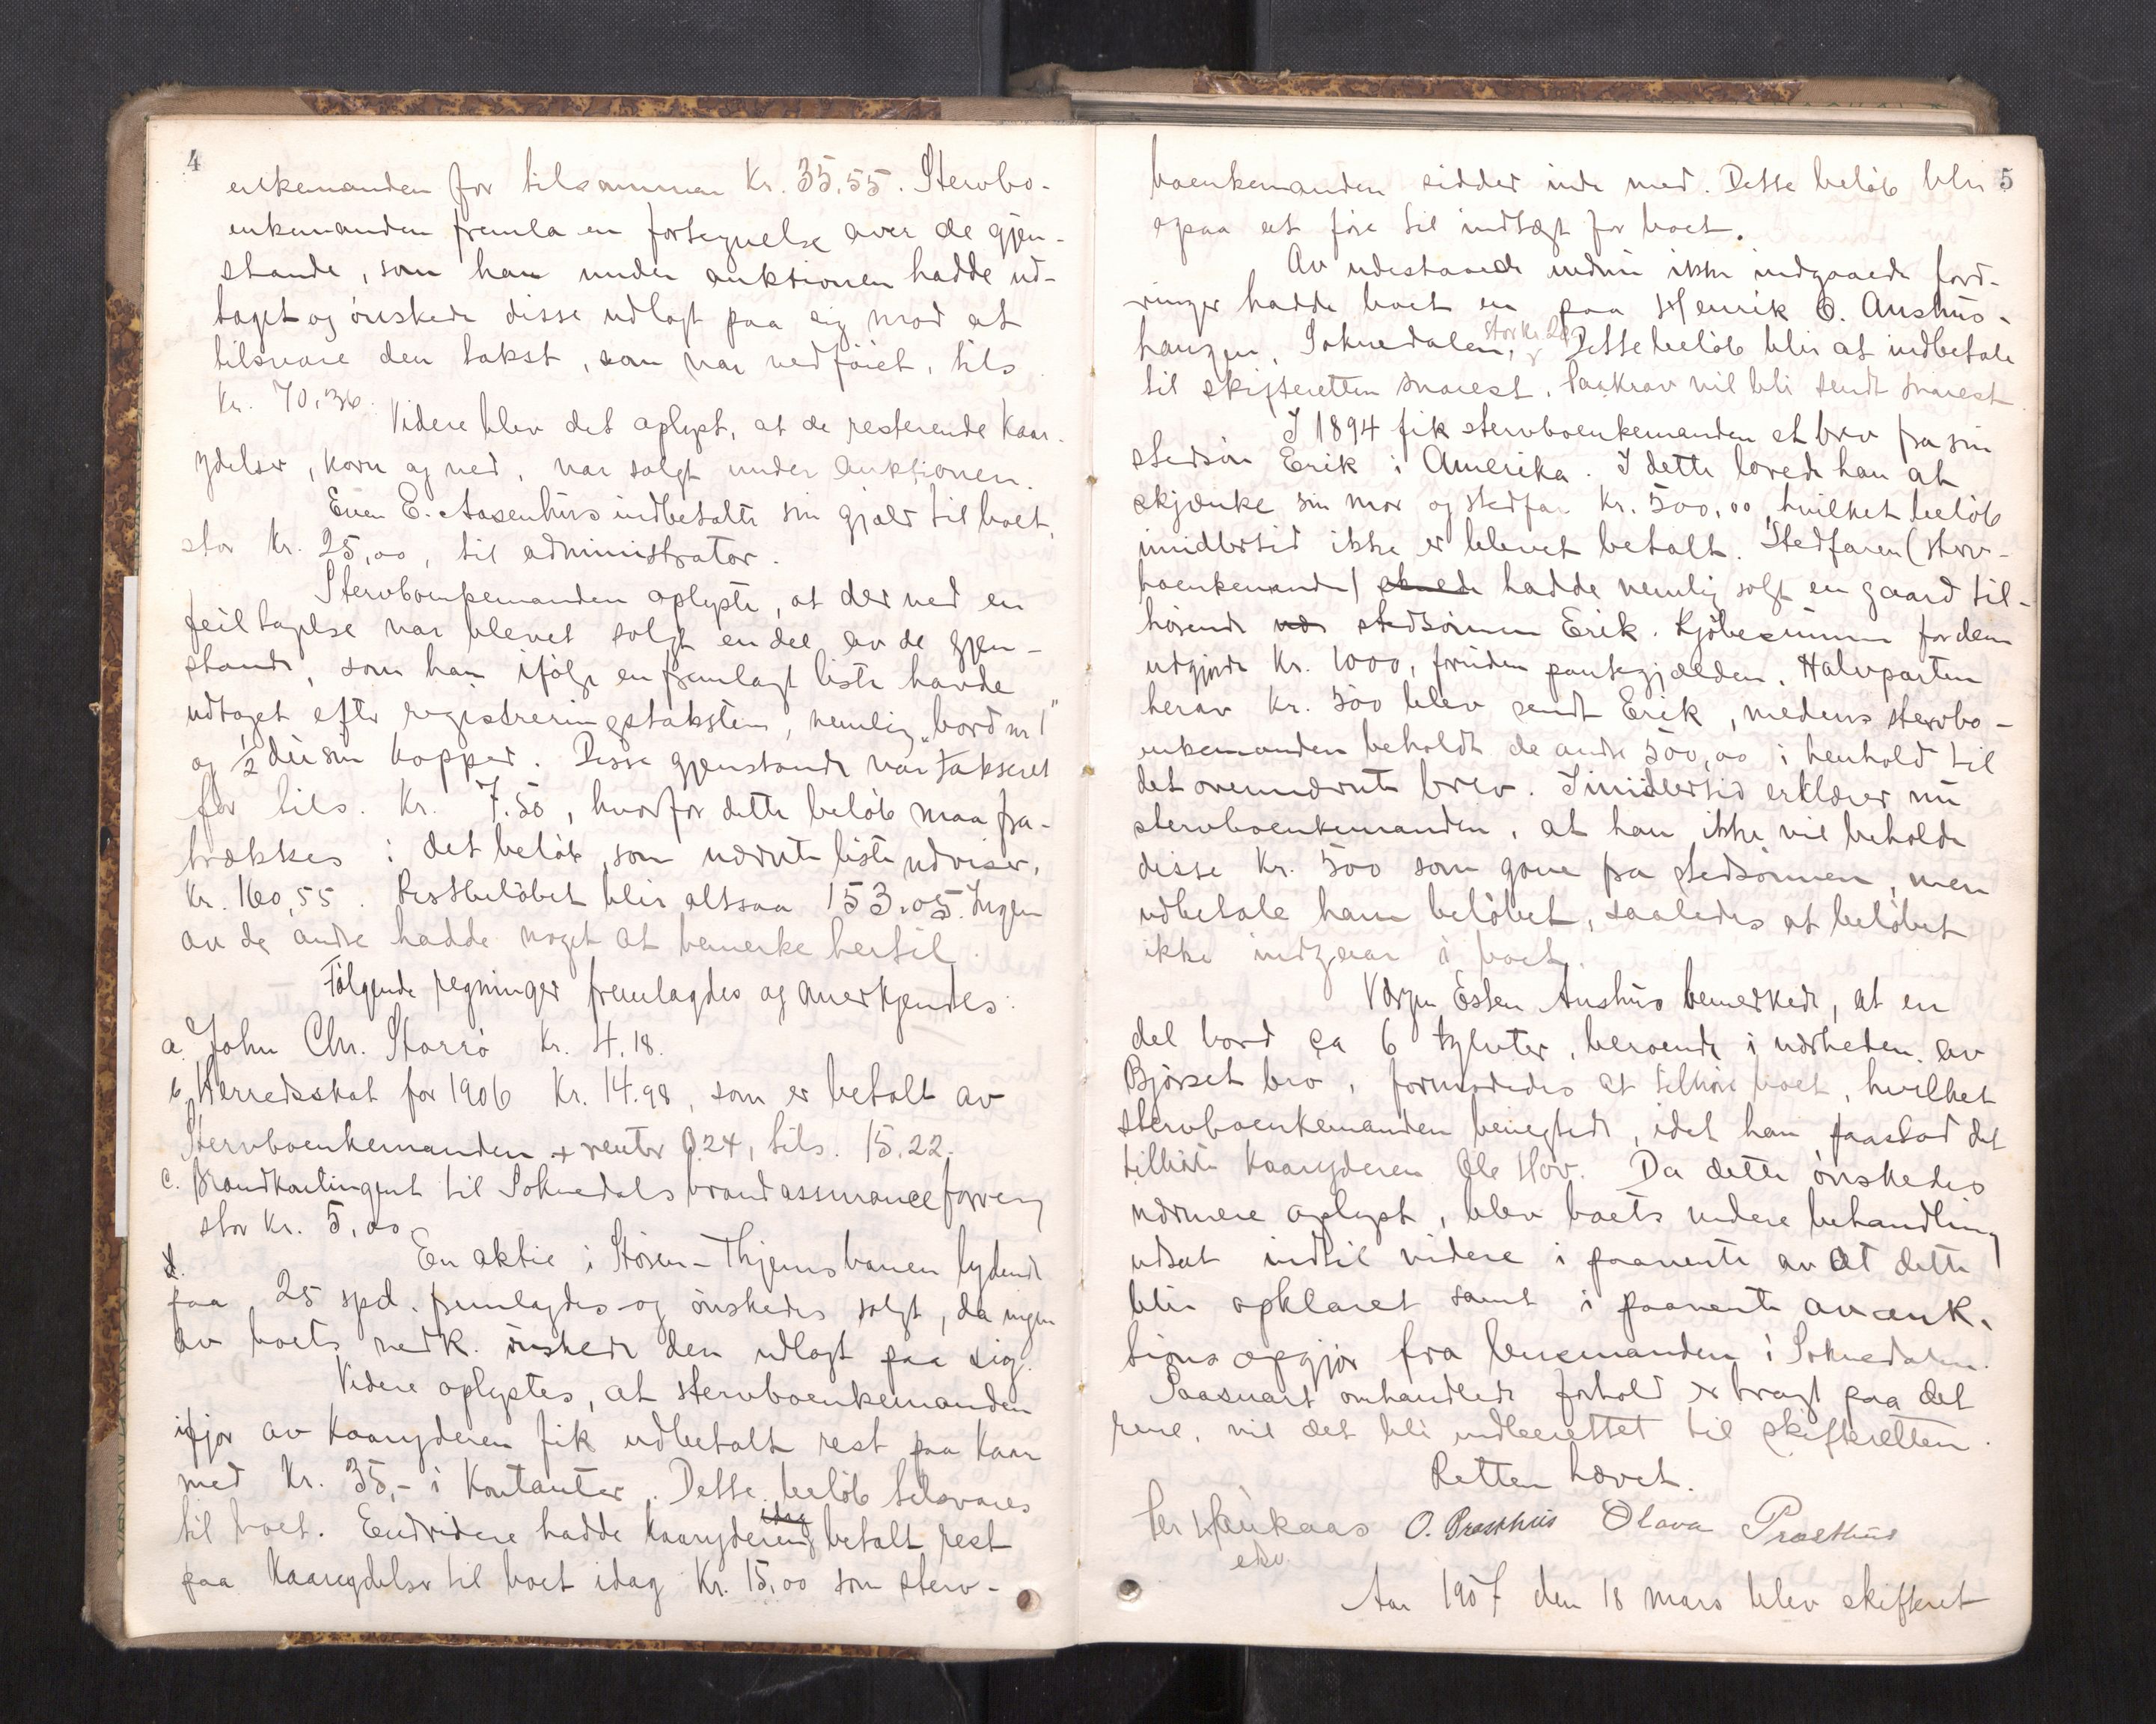 4
enkemanden for tilsammen Kr. 35,55. Stervbo-
enkemanden fremla en fortegnelse over de gjen-
stande, som han under auktionen hadde ud-
taget og ønskede disse udlagt paa sig mod at
tilsvare den takst, som var vedføiet, tils
Kr. 70,36.
Videre blev det oplyst, at de resterende kaar-
ydelser, korn og ved, var solgt under auktionen.
Even E. Aasenhus indbetalte sin gjæld til boet,
stor Kr. 25,00, til administrator.
Stervboenkemanden oplyste, at der ved en
feiltagelse var blevet solgt en del av de gjen-
stande, som han ifølge en fremlagt liste havde
udtaget efter registreringstaksten, nemlig „bord nr 1"
og 1/2 dusin kopper. Disse gjenstande var takseret
for tils. Kr. 7.50, hvorfor dette beløb maa fra-
trækkes i det beløb, som nævnte liste udviser,
Kr. 160,55. Restbeløbet blir altsaa 153.05. Ingen
av de andre hadde noget at bemerke hertil.
Følgende regninger fremlagdes og anerkjendes:
a. John Chr. Storrø Kr. 4.18.
b. Herredsskat for 1906 Kr. 14.98, som er betalt av
Stervboenkemanden + renter 0.24, tils. 15.22.
c. Brandkontingent til Soknedals brandassuranceforreng
stor Kr. 5,00
d. En aktie i Støren-Thjemsbanen lydende
paa 25 spd. fremlagdes og ønskedes solgt, da ingen
av boets vedk. ønskede den udlagt paa sig.
Videre oplystes, at stervboenkemanden
ifjor av kaaryderen fik udbetalt rest paa kaar
med Kr. 35,- i kontanter. Dette beløb tilsvares
til boet. Endvidere hadde kaaryderen idag betalt rest
paa kaarydelser til boet idag Kr. 15,00 som sterv-
5
boenkemanden sidder inde med. Dette beløb blir
ogsaa at føre til indtægt for boet.
Av udestaaende endnu ikke indgaaede ford-
ringer hadde boet en paa Henrik O. Aushus-
haugen, Soknedalen, stor kr. Dette beløb blir at indbetale
til skifteretten snarest. Paakrav vil bli sendt snarest
I 1894 fik stervboenkemanden et brev fra sin
stedsøn Erik i Amerika. I dette lovede han at
skjænke sin mor og stedfar Kr. 500,00, hvilket beløb
imidlertid ikke er blevet betalt. Stedfaren (sterv-
boenkemanden) hadde nemlig solgt en gaard til-
hørende stedsønnen Erik. Kjøbesummen for den
udgjorde Kr. 1000, foruden pantegjælden. Halvparten
herav Kr. 500 blev sendt Erik, medens stervbo-
enkemanden beholdt de andre 500,00 i henhold til
det ovennævnte brev. Imidlertid erklærer nu
stervboenkemanden, at han ikke vil beholde
disse Kr. 500 som gave fra stedsønnen, men
udbetale ham beløbet, saaledes at beløbet
ikke indgaar i boet.
Værgen Esten Aushus bemerkede, at en
del bord ca 6 tylvter, beroende i nærheden av
Bjørset bro, formodedes at tilhøre boet, hvilket
stervboenkemanden benegtede, idet han paastod det
tilhørte kaaryderen Ole Hov. Da dette ønskedes
nærmere oplyst, blev boets videre behandling
udsat indtil videre i paavente av at dette
blir opklaret samt i paavente av auk-
tionsopgjør fra lensmanden i Soknedalen.
Saasnart omhandlede forhold er bragt paa det
rene, vil det bli indberettet til skifteretten.
Retten hævet.
Per Haukaas O. Præsthus Olava Præsthus
eks.
Aar 1907 den 18 mars blev skifteret